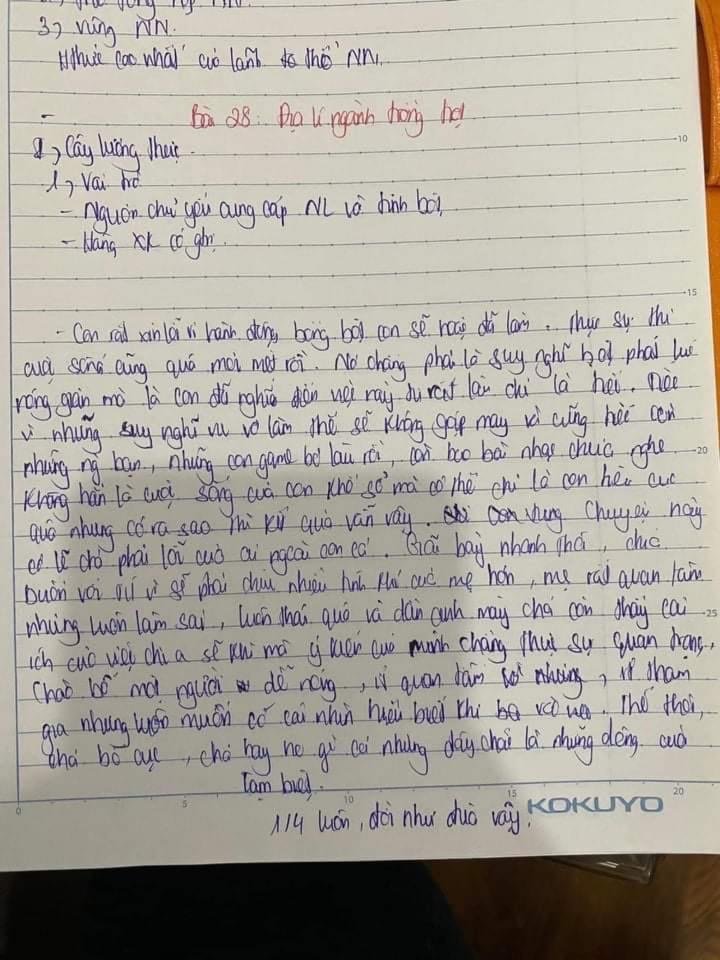 3, vùng NN.
Hthức cao nhất củ lãnh thổ NN.
Bài 28: Địa lí ngành trồng trọt
I, Cây lương thực.
1, Vai trò
- Nguồn chủ yếu cung cấp NL và tinh bột,
- Hàng XK có giá.
- Con rất xin lỗi vì hành động bồng bột con sẽ hoặc đã làm. Thực sự thì
cuộc sống cũng quá mỏi mệt rồi. Nó chẳng phải là suy nghĩ bột phát lúc
nóng giận mà là con đã nghĩ đến việc này rất lần chỉ là hèn.
vì những suy nghĩ vu vơ làm thế sẽ không gặp may và cũng
những ng bạn, những con game bỏ lâu rồi, còn bao bài nhạc chưa nghe.
Không hẳn là cuộc sống của con khổ sở mà có thể chỉ là con tiêu cực
quá nhưng có ra sao thì kq vẫn vậy. Chuyện này
có lẽ chả phải lỗi của ai ngoài con cả. Giãi bày nhanh thôi, chắc
buồn với vì sẽ phải chịu nhiều tính khí của mẹ hơn, mẹ rất quan tâm
nhưng luôn làm sai, luôn thái quá và dần anh mày chả còn thấy cái
ích của việc chia sẻ khi mà ý kiến của mình chẳng thực sự quan trọng,
Chào bố một người dễ nóng, ít quan tâm nhưng, ít tham
gia nhưng luôn muốn có cái nhìn hiểu biết khi. Thế thôi,
chả bố cục, chả hay ho gì cả nhưng đây chắc là những dòng của
tạm biệt.
1/4 luôn, đời như đùa vậy.
KOKUYO
10
15
20
25
0
5
10
15
20